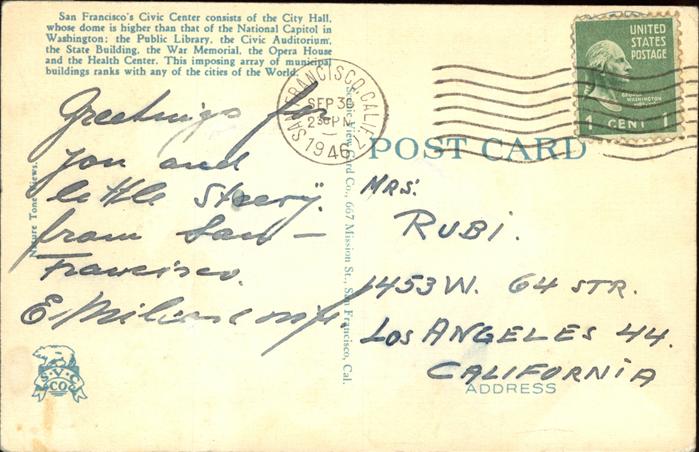 San Francisco's Civic Center consists of the City Hall,
whose dome is higher than that of the National Capitol in
Washington: the Public Library, the Civic Auditorium,
the State Building, the War Memorial, the Opera House
and the Health Center. This imposing array of municipal
buildings ranks with any of the cities of the World.
SAN FRANCISCO, CALIF.
SEP 30
2 30 PM
1946
UNITED
STATES
POSTAGE
GEORGE
WASHINGTON
1 CENT 1
POST CARD
Greetings for
you and
little
from San-
Francisco.
E.
Nature Tone Views.
Scenic View Card Co., 667 Mission St., San Francisco, Cal.
S.V.C.
CO.
MRS.
RUBI.
1453 W. 64 STR.
LOS ANGELES 44.
CALIFORNIA
ADDRESS